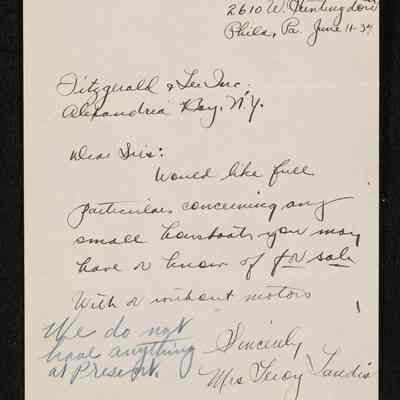 2610 W. Huntingdon
Phila, Pa. June 11-34
Fitzgerald & Lee Inc.
Alexandria Bay, N.Y.
Dear Sirs:
Would like full
particulars concerning any
small houseboats you may
have or know of for sale
With or without motors
Sincerely
Mrs Leroy Landis
We do not
have anything
at Present.